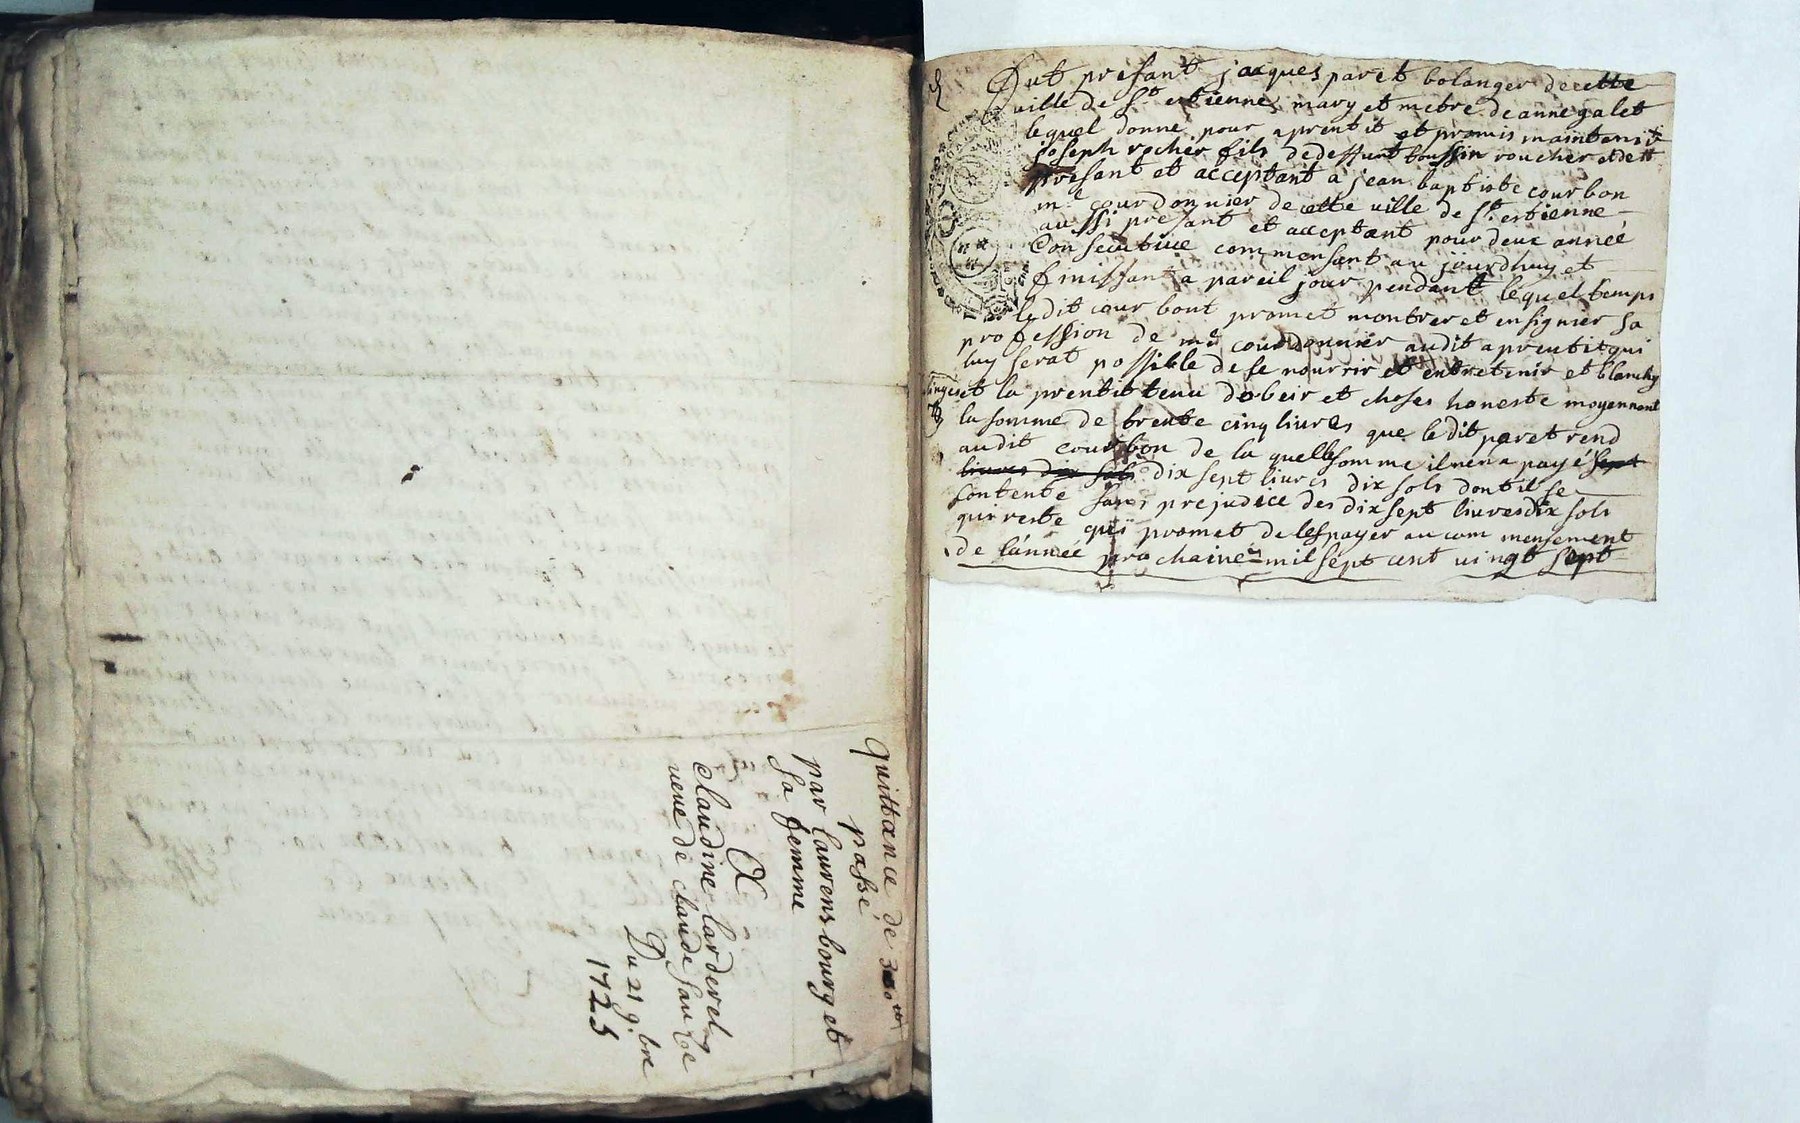 quittance de
passé
par laurens bourg et
sa femme
A
Claudine larderel
veuve de claude sauze
Du 21 9.bre
1725
Fut presant jacques paret bolanger de cette
ville de St estienne mary et metre de anne galet
lequel donne pour aprentit et promis maintenir
joseph rocher fils de deffunt toussin roucher
presant et acceptant a jean baptiste courbon
me courdonnier de cette ville de St estienne
aussi presant et acceptant pour deux année
Consecutive commensant au jourdhuy et
finissant a pareil jour pendant lequel temps
ledit cour bont promet montrer et ensignier sa
profession de me courdonnier audit aprentit qui
luy serat possible de se nourrir et entretenir et blanchy
linges et la prentit tenu dobeir et choses honeste moyennant
la somme de trente cinq livres que ledit paret rend
audit courbon de la quelle somme il nen a payé sept
livres dix sols dix sept livres dix sols dont il se
contente sans prejudice des dix sept livres dix sols
qui reste qui promet de les payer au com mensement
de lánnéé pro chaine mil sept cent vingt sept